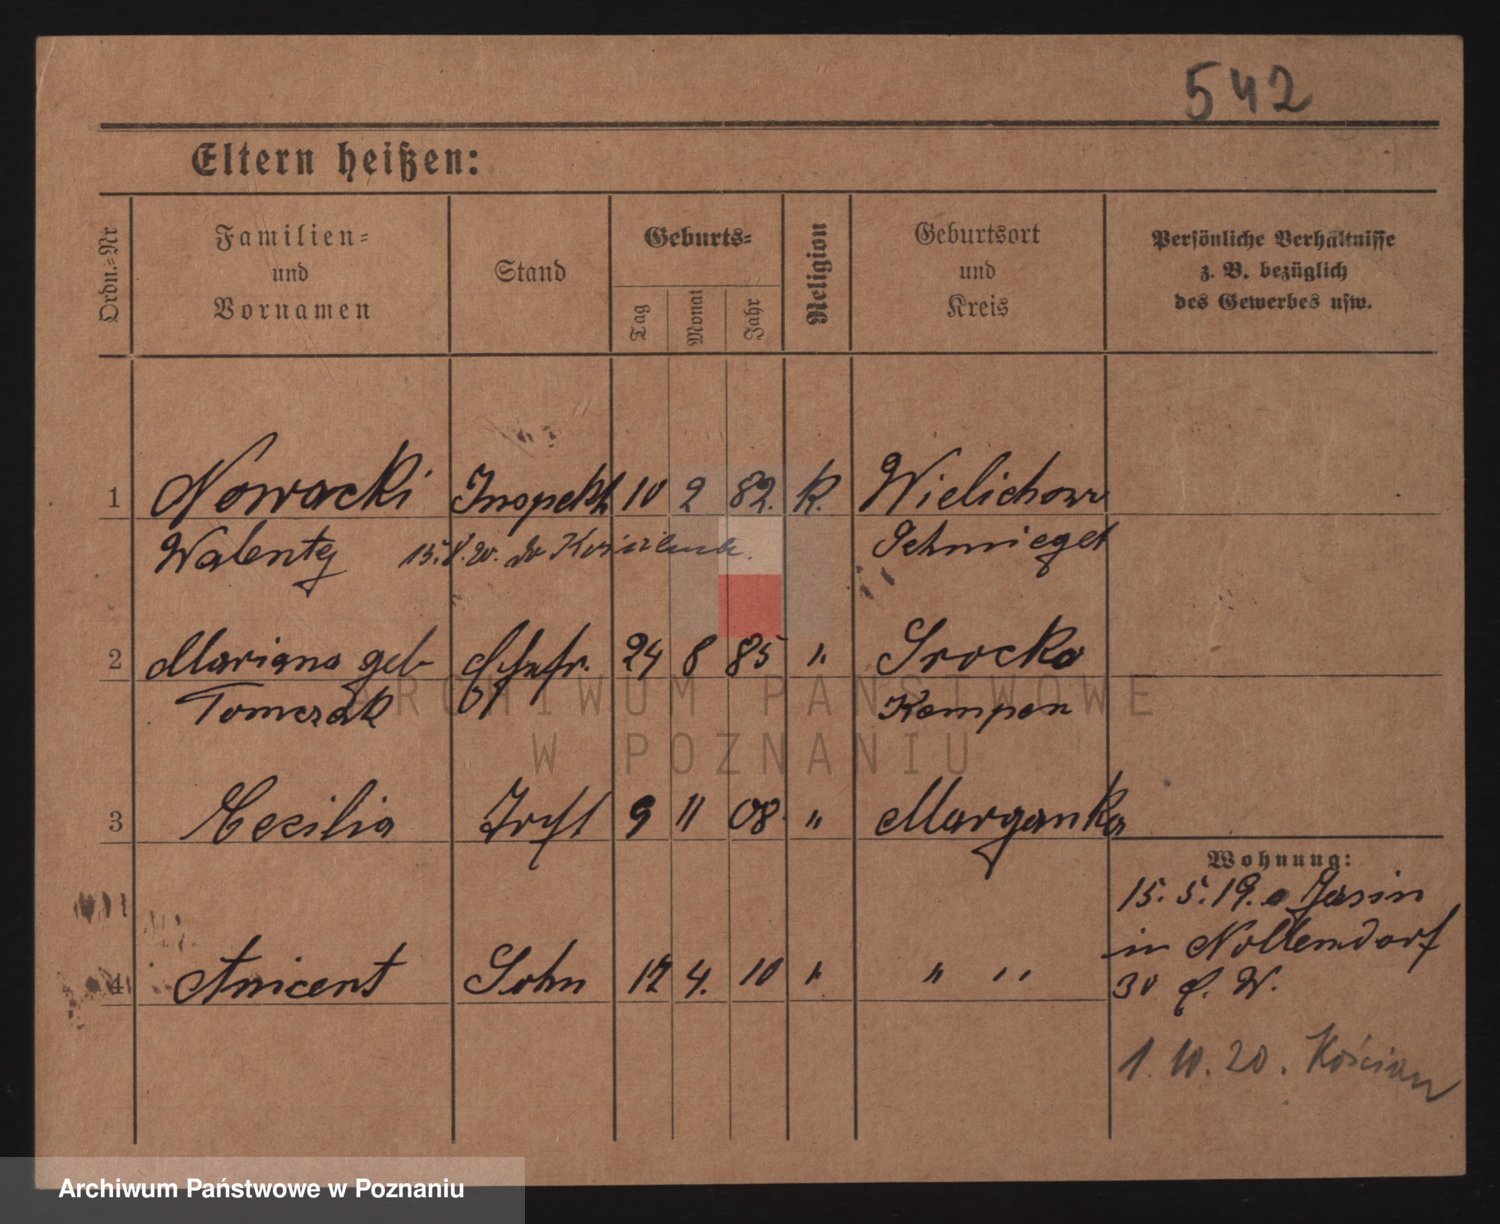 542
Eltern heißen:
Ordn.-Nr
Familien-
und
Vornamen
Stand
Geburts-
Tag
Monat
Jahr
Religion
Geburtsort
und
Kreis
Persönliche Verhältnisse
z. B. bezüglich
des Gewerbes usw.
1 Nowacki Inspekt 10 2 82. k. Wielichowo
Walenty 15.8.20. do Schmiegel
2 Mariana geb Ehefr. 24 8 85 ". Srocko
Tomczak Kempen
3 Cecilia 9 11 08. " Morganka
Wohnung:
15. 5. 19. a Jersin
in Nollendorf
4 Anicent Sohn 12 4. 10 " " "
30 b. W.
1. 10. 20. Kościan
ARCHIWUM PAŃSTWOWE
W POZNANIU
Archiwum Państwowe w Poznaniu